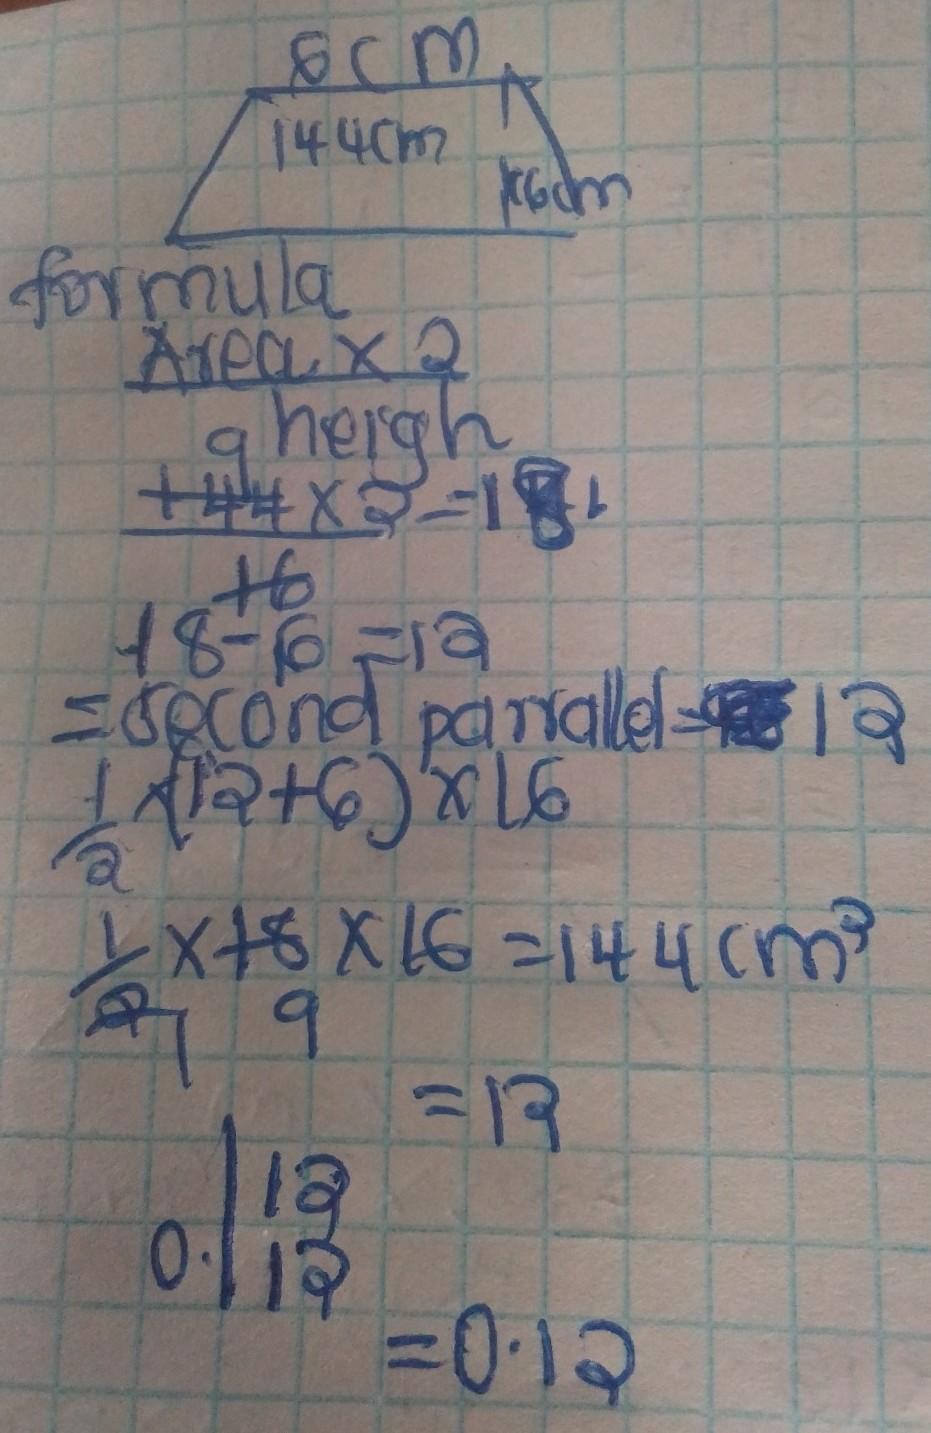 6cm
144cm
16cm
formula
Area x 2
heigh
9
144 x 2 = 18
16
18-6 = 12
= second parralel = 12
1/2 x (12+6) x 16
1/2 x 18 x 16 = 144cm²
1 9
= 12
12
0. 12
= 0.12